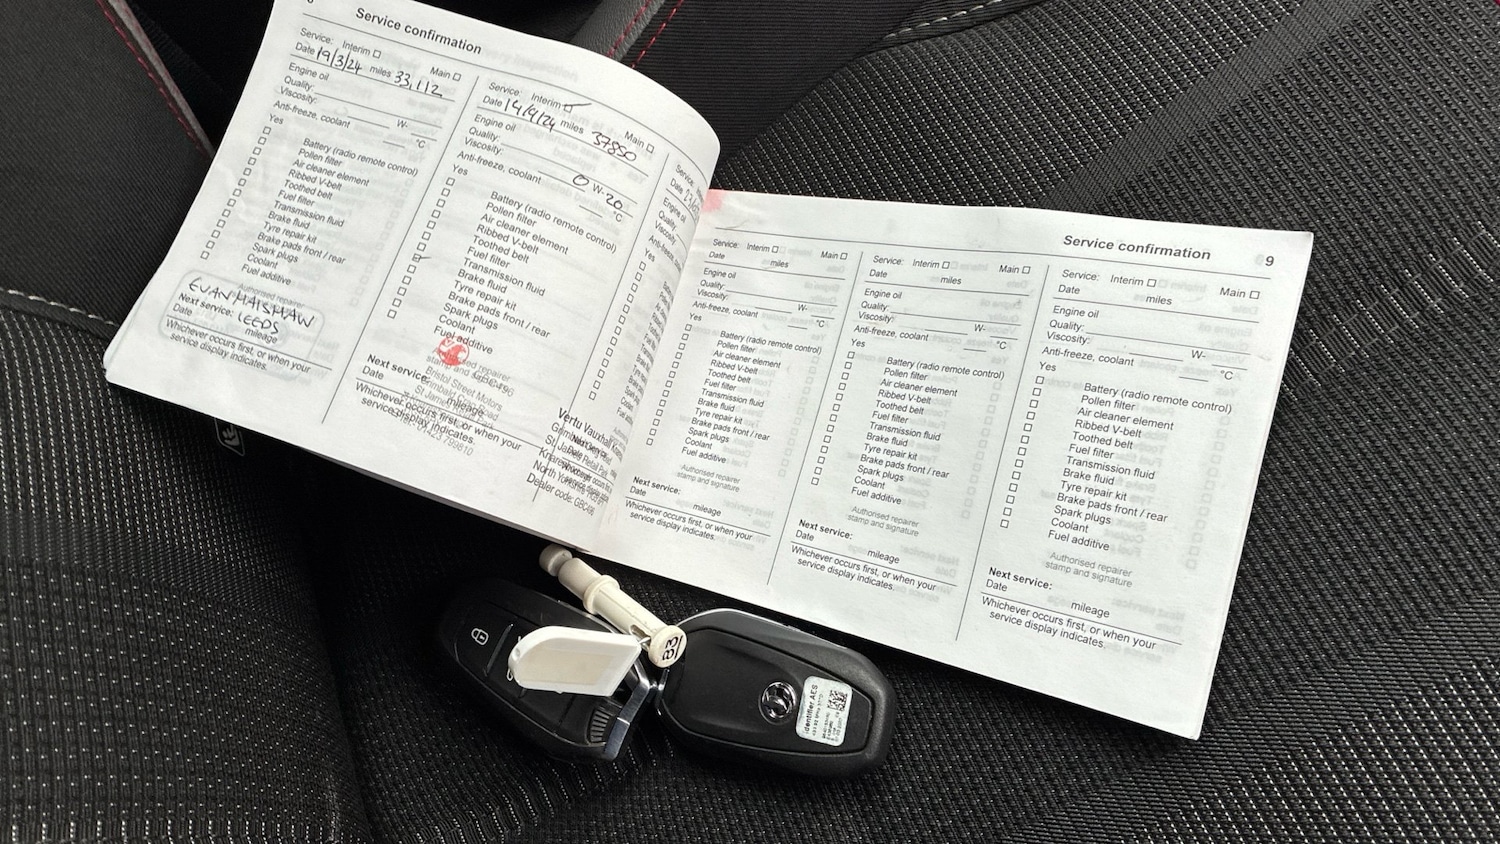 Service confirmation
Service: Interim Main
Date 19/3/24 miles 33,112
Engine oil
Quality:
Viscosity: W-
Anti-freeze, coolant °C
Yes
Battery (radio remote control)
Pollen filter
Air cleaner element
Ribbed V-belt
Toothed belt
Fuel filter
Transmission fluid
Brake fluid
Tyre repair kit
Brake pads front / rear
Spark plugs
Coolant
Fuel additive
Authorised repairer
EVANHALSHAW
LEEDS
Next service:
Date mileage
Whichever occurs first, or when your
service display indicates.
Service: Interim Main
Date 14/9/24 miles 37850
Engine oil
Quality:
Viscosity: 0 W-20
Anti-freeze, coolant °C
Yes
Battery (radio remote control)
Pollen filter
Air cleaner element
Ribbed V-belt
Toothed belt
Fuel filter
Transmission fluid
Brake fluid
Tyre repair kit
Brake pads front / rear
Spark plugs
Coolant
Fuel additive
Bristol Street Motors
Next service:
Date mileage
Whichever occurs first, or when your
service display indicates.
Service:
Date
Engine oil
Quality:
Yes
Vertu Vauxhall
Dealer code: GBC496
Service confirmation 9
Service: Interim Main
Date miles
Engine oil
Quality:
Viscosity: W-
Anti-freeze, coolant °C
Yes
Battery (radio remote control)
Pollen filter
Air cleaner element
Ribbed V-belt
Toothed belt
Fuel filter
Transmission fluid
Brake fluid
Tyre repair kit
Brake pads front / rear
Spark plugs
Coolant
Fuel additive
Authorised repairer
stamp and signature
Next service:
Date mileage
Whichever occurs first, or when your
service display indicates.
Service: Interim Main
Date miles
Engine oil
Quality:
Viscosity: W-
Anti-freeze, coolant °C
Yes
Battery (radio remote control)
Pollen filter
Air cleaner element
Ribbed V-belt
Toothed belt
Fuel filter
Transmission fluid
Brake fluid
Tyre repair kit
Brake pads front / rear
Spark plugs
Coolant
Fuel additive
Authorised repairer
stamp and signature
Next service:
Date mileage
Whichever occurs first, or when your
service display indicates.
Service: Interim Main
Date miles
Engine oil
Quality:
Viscosity: W-
Anti-freeze, coolant °C
Yes
Battery (radio remote control)
Pollen filter
Air cleaner element
Ribbed V-belt
Toothed belt
Fuel filter
Transmission fluid
Brake fluid
Tyre repair kit
Brake pads front / rear
Spark plugs
Coolant
Fuel additive
Authorised repairer
stamp and signature
Next service:
Date mileage
Whichever occurs first, or when your
service display indicates.
183
identifier AES